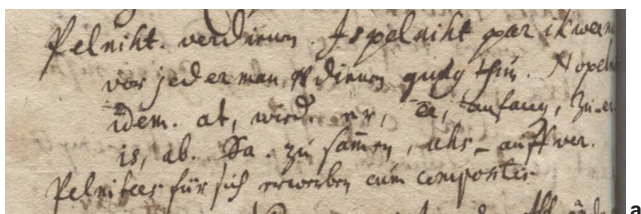 Pelniht. verdienen Is pelniht par ikwen
vor jederman dienen gnug thun. Nopeln
idem. at, wied. er, ee, anfang, zu-er
is, ab. Sa. zu sam̄en, uhs_auffwer.
Pelnitees für sich erwerben cum compositis
a